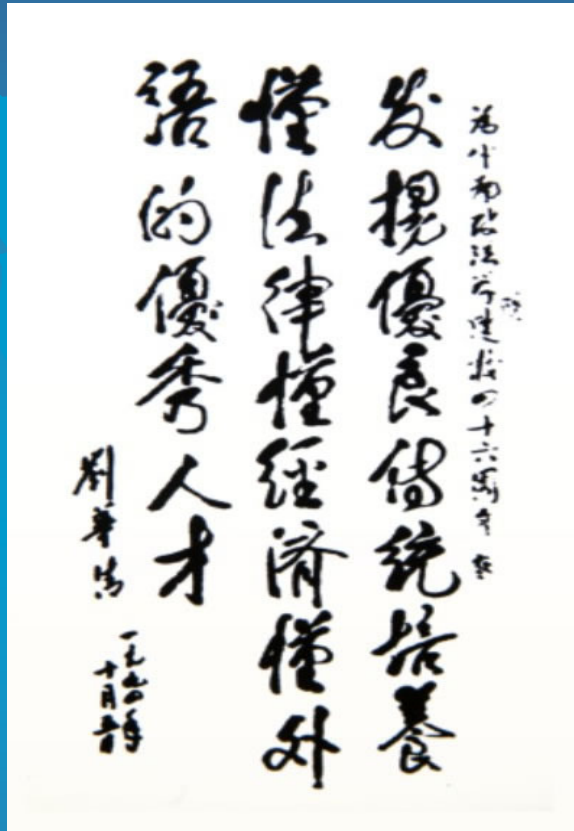 為中南政法学院建校四十六周年
发揚優良傳統培養
懂法律懂經濟懂外
語的優秀人才
劉華清
一九九四年
十月